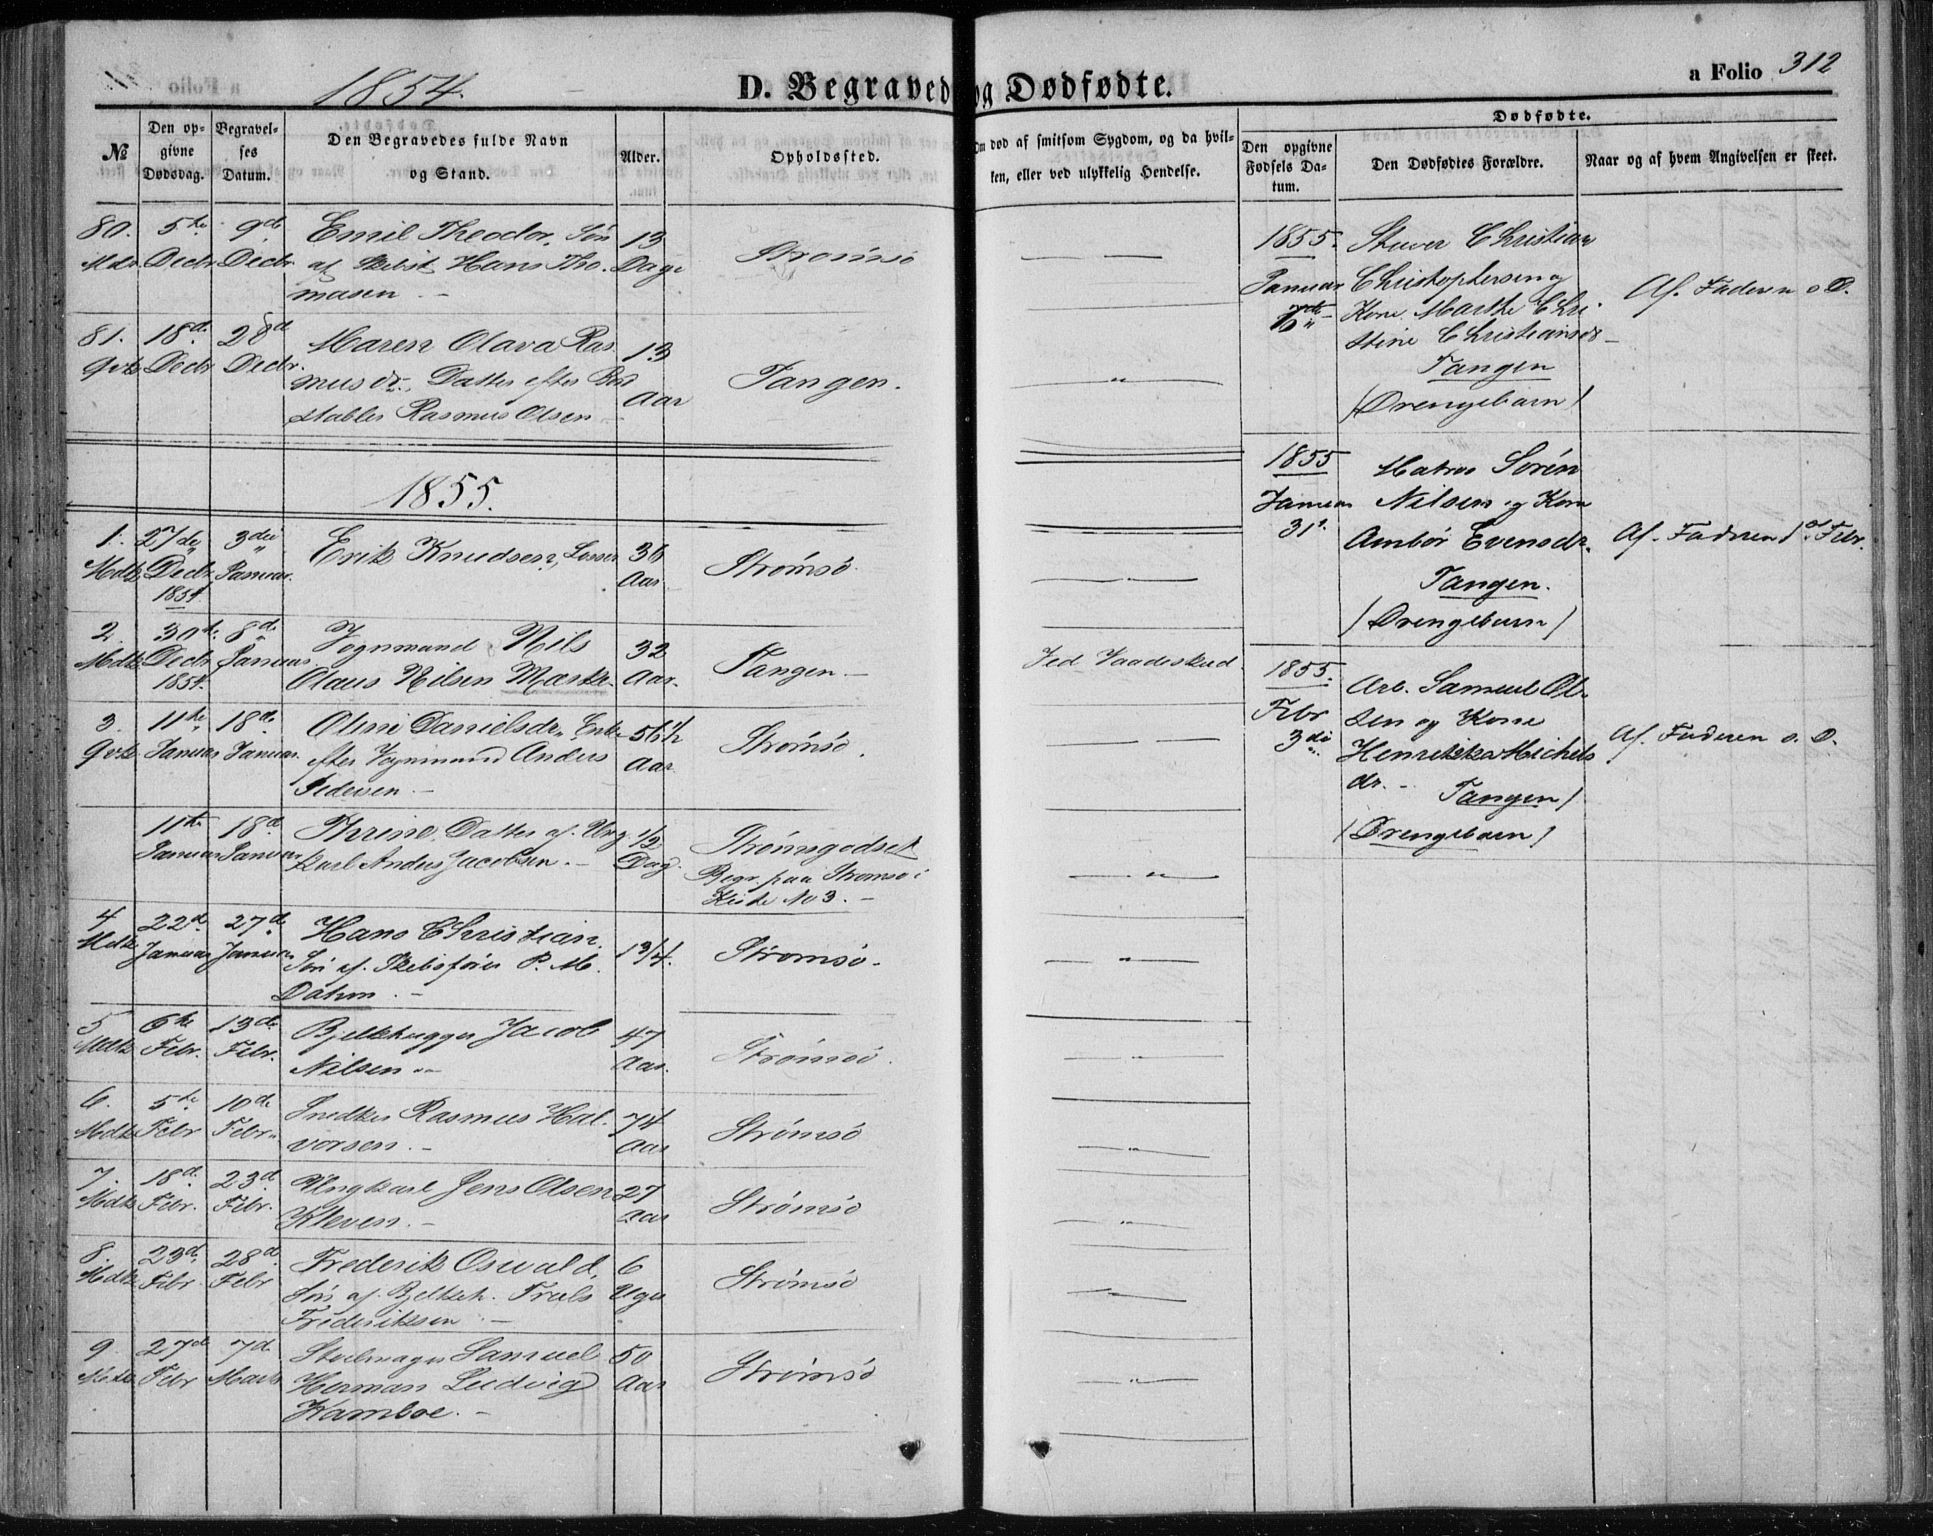 1854.
D. Begravede og Dødfødte.
a Folio 312
№
Den opgivne Dødsdag.
Begravelses Datum.
Den Begravedes fulde Navn og Stand.
Alder.
Opholdssted.
Om død af smitsom Sygdom, og da hvilken, eller ved ulykkelig Hendelse.
Dødfødte.
Den opgivne Fødsels Datum.
Den Dødfødtes Forældre.
Naar og af hvem Angivelsen er skeet.
80. 5te 9de Emil Theodor, Søn 13
Mdk. Decbr. Decbr. af Skibst. Hans Tho- Dage Strømsø
masen. -
81. 18de 28de Maren Olava Ras- 13
Qvk. Decbr Decbr. musdr., Datter efter Aar Tangen.
Rasmus Olsen -
1855.
1. 27de 3die Erik Knudsen, Losser 36
Mdk. Decbr. Januar. Aar. Strømsø.
1854.
2. 30te 8de Vognmand Nils 32 Ved Vaadeskud
Mdk. Decbr Januar. Olaus Nilsen Mæsk. Aar. Tangen. -
1854.
3. 11te 18de Oline Danielsdr., Enke 56 1/2
Qvk. Januar Januar. efter Vognmand Anders Aar Strømsø.
Pedersen. -
11te 18de Thrine, Datter af Ung- 1/2 Strømsgodset
Januar Januar karl Anders Jacobsen. - Dag. Begr. paa Strømsø i
Kiste No 3. -
4 22de 27de Hans Christian.
Mdk. Januar Januar Søn af Skibsfører P. M. 1 3/4. Strømsø.
Dahm. -
5 6te 13de Bjelkehugger Jacob 47
Mdk Febr. Febr. Nilsen. - Aar. Strømsø.
6. 5te 10de Snedker Rasmus Hal- 74
Mdk. Febr Febr. vorsen. - Aar Strømsø
7. 18de 23de Ungkarl Jens Olsen 27
Mdk Febr. Febr. Kleven. - Aar Strømsø
8. 23de 28de Frederik Oswald, 6
Mdk. Febr. Febr Søn af Bjelkeh. Troels Uger Strømsø
Frederiksen -
9. 27de 7de Samuel 50
Mdk. Febr Marts Herman Ludvig Aar Strømsø
Kamboe. -
1855. Stuver Christian
Januar Christophersen og Af Faderen s. D.
Kone Marthe Chri-
stine Christiansdr -
Tangen
/Drengebarn/
1855 Matros Sørén
Januar Nilsen og Kone
31t. Ambør Evensdr. Af Faderen 1ste Febr.
Tangen.
/Drengebarn/
1855. Arb. Samuel Ol-
Febr sen og Kone
3die Henrikka Michels Af Faderen s. D.
dr. - Tangen/
/Drengebarn/